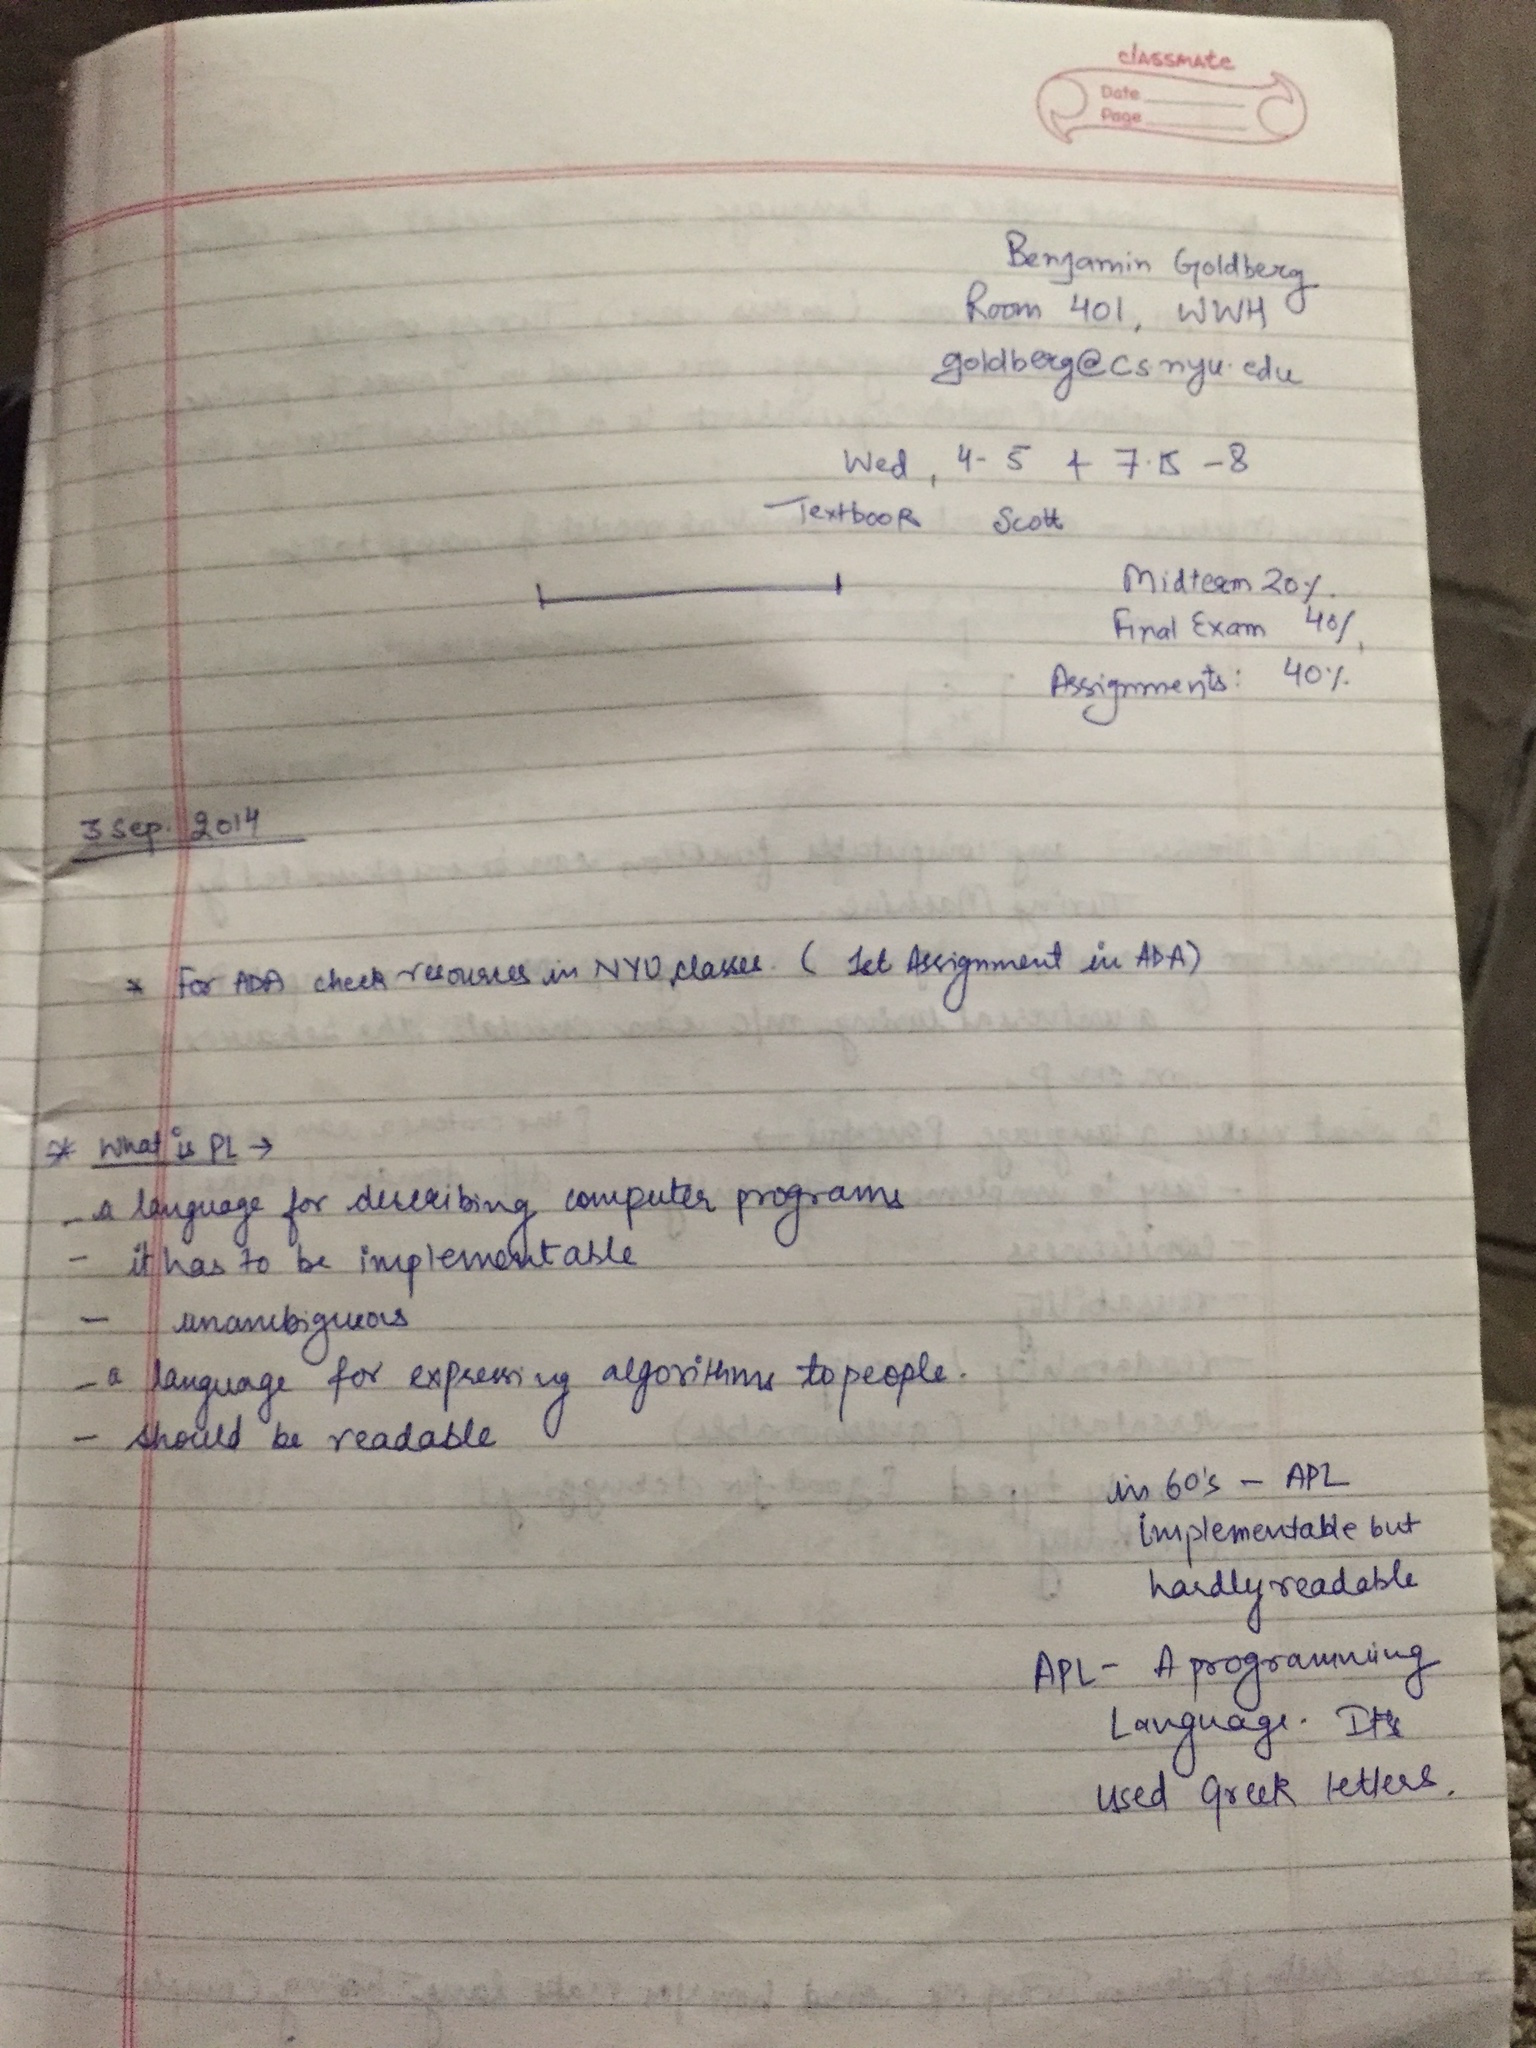 classmate
Date
Page
Benjamin Goldberg
Room 401, WWH
goldberg@cs nyu.edu
Wed, 4-5 + 7.15-8
Textbook Scott
Midterm 20%.
Final Exam 40%,
Assignments: 40%.
3 Sep. 2014
* For ADA check resources in NYU classes. (1st Assignment in ADA)
* What is PL →
- a language for describing computer programs
- it has to be implementable
- unambiguous
- a language for expressing algorithms to people.
- should be readable
in 60's - APL
implementable but
hardly readable
APL - A programming
Language. It
used Greek letters.